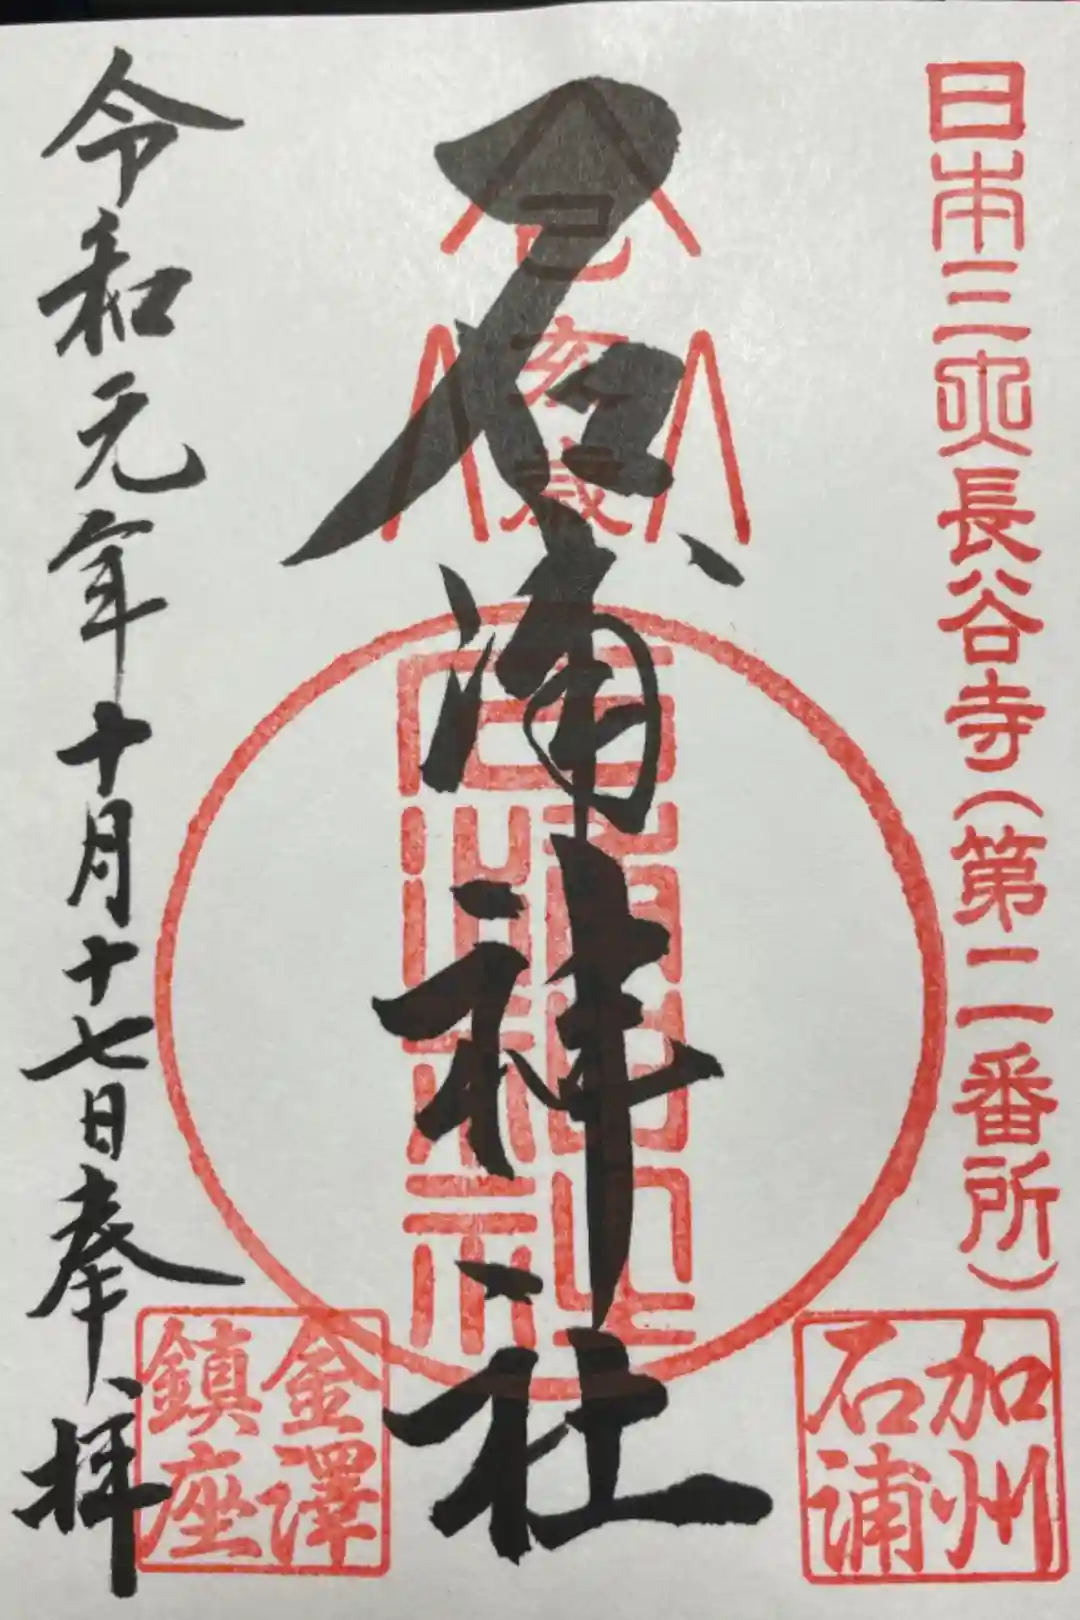 日本三大長谷寺(第二番所)
加州
石浦
己亥歳
石浦神社
令和元年十月十七日奉拝
金澤
鎮座